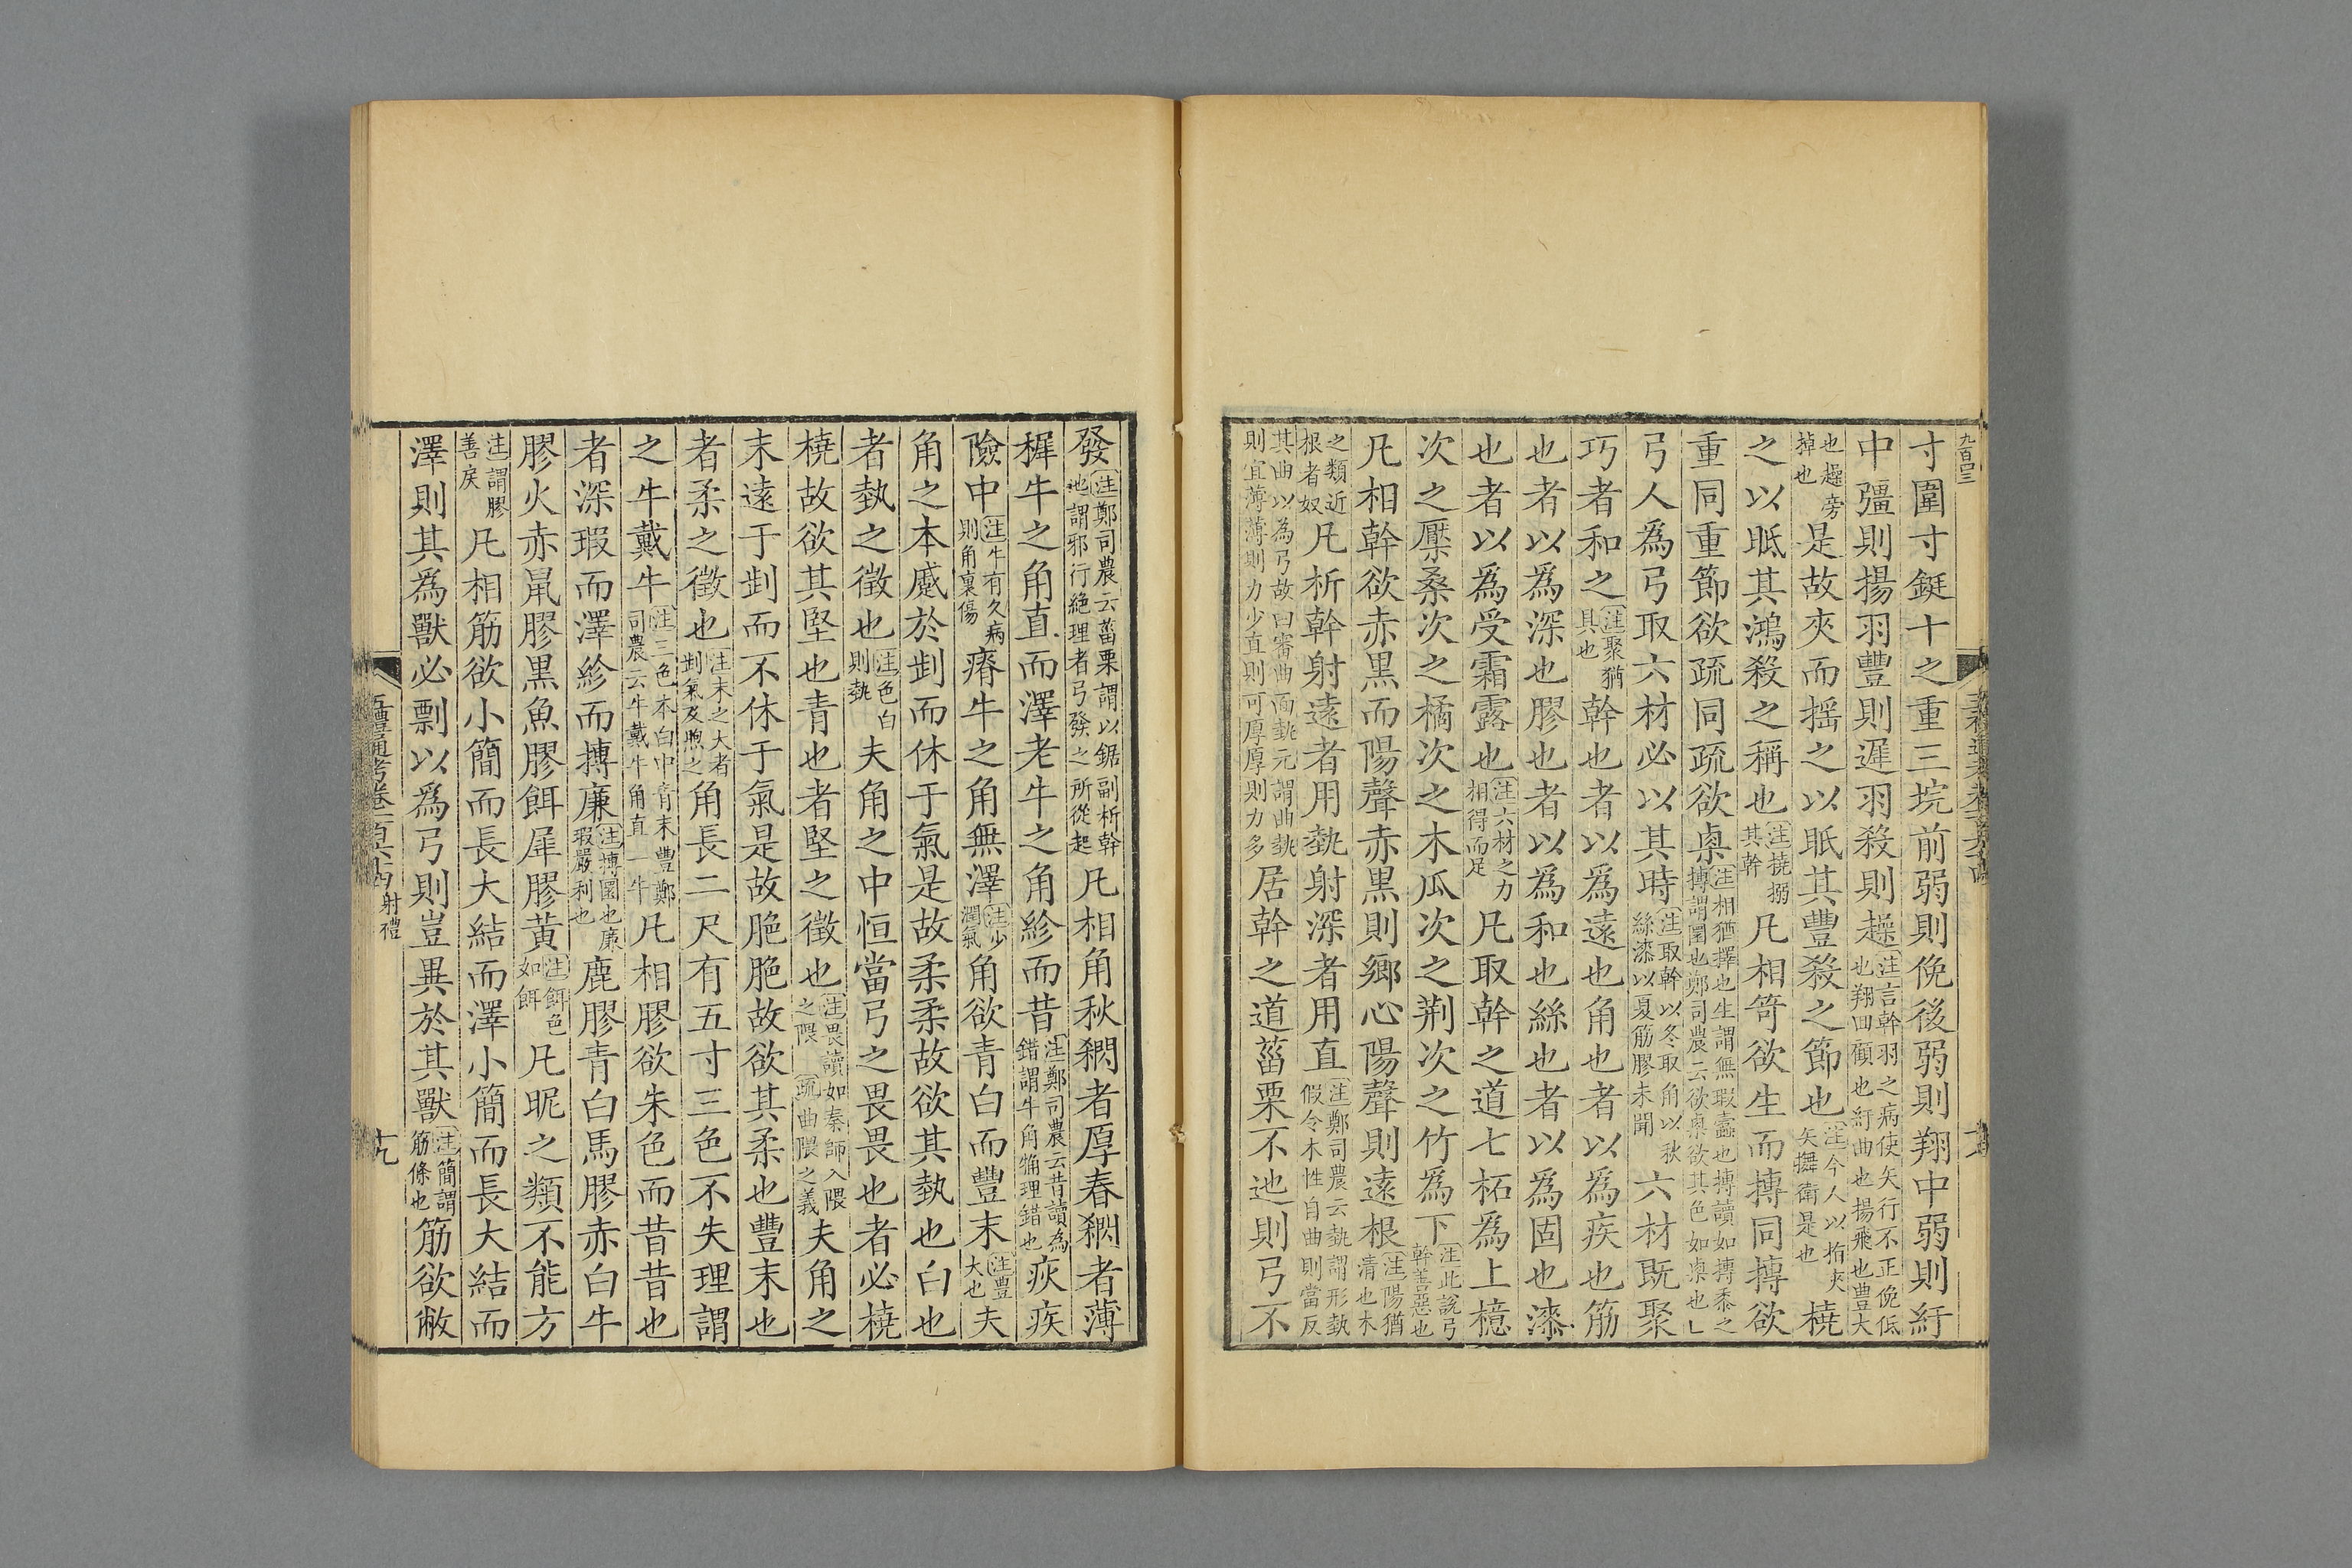 九百四三
寸圍寸鋌十之重三垸前弱則俛後弱則翔中弱則紆
中彊則揚羽豐則遲羽殺則趮注言幹羽之病使矢行不正俛低也翔回顧也紆曲也揚飛也豐大
也趮旁掉也是故夾而揺之以眂其豐殺之節也注今人以指夾矢儛衛是也橈
之以眡其鴻殺之稱也注撓搦其幹凡相笴欲生而摶同摶欲
重同重節欲疏同疏欲㮚注相猶擇也生謂無瑕蠹也摶讀如摶黍之摶謂圜也鄭司農云欲㮚欲其色如㮚也
弓人爲弓取六材必以其時注取幹以冬取角以秋絲漆以夏筋膠未聞六材既聚
巧者和之注聚猶具也幹也者以爲遠也角也者以爲疾也筋
也者以爲深也膠也者以爲和也絲也者以爲固也漆
也者以爲受霜露也注六材之力相得而足凡取幹之道七柘爲上檍
次之檿桑次之橘次之木瓜次之荆次之竹爲下注此說弓幹善惡也
凡相幹欲赤黑而陽聲赤黑則鄉心陽聲則遠根注陽猶清也木
之類近根者奴凡析幹射遠者用埶射深者用直注鄭司農云埶謂形埶假令木性自曲則當反
其曲以為弓故曰審曲面埶元謂曲埶則宜薄薄則力少直則可厚厚則力多居幹之道菑栗不迆則弓不
發注鄭司農云菑栗謂以鋸副析幹迆謂邪行絶理者弓發之所從起凡相角秋閷者厚春閷者薄
稺牛之角直而澤老牛之角紾而昔注鄭司農云昔讀為錯謂牛角觕理錯也疢疾
險中注牛有久病則角裏傷瘠牛之角無澤注少潤氣角欲青白而豐末注豐大也夫
角之本蹙於㓲而休于氣是故柔柔故欲其埶也白也
者埶之徵也注色白則埶夫角之中恒當弓之畏畏也者必橈
橈故欲其堅也青也者堅之徵也注畏讀如秦師入隈之隈疏曲隈之義夫角之
末遠于㓲而不休于氣是故脃脃故欲其柔也豐末也
者柔之徵也注末之大者㓲氣及煦之角長二尺有五寸三色不失理謂
之牛戴牛注三色本白中青末豐鄭司農云牛戴牛角直一牛凡相膠欲朱色而昔昔也
者深瑕而澤紾而摶廉注摶圜也廉瑕嚴利也鹿膠青白馬膠赤白牛
膠火赤鼠膠黑魚膠餌犀膠黃注餌色如餌凡昵之類不能方
注謂膠善戾凡相筋欲小簡而長大結而澤小簡而長大結而
澤則其爲獸必剽以爲弓則豈異於其獸注簡謂筋條也筋欲敝
五禮通考卷一百六十四 射禮
十九